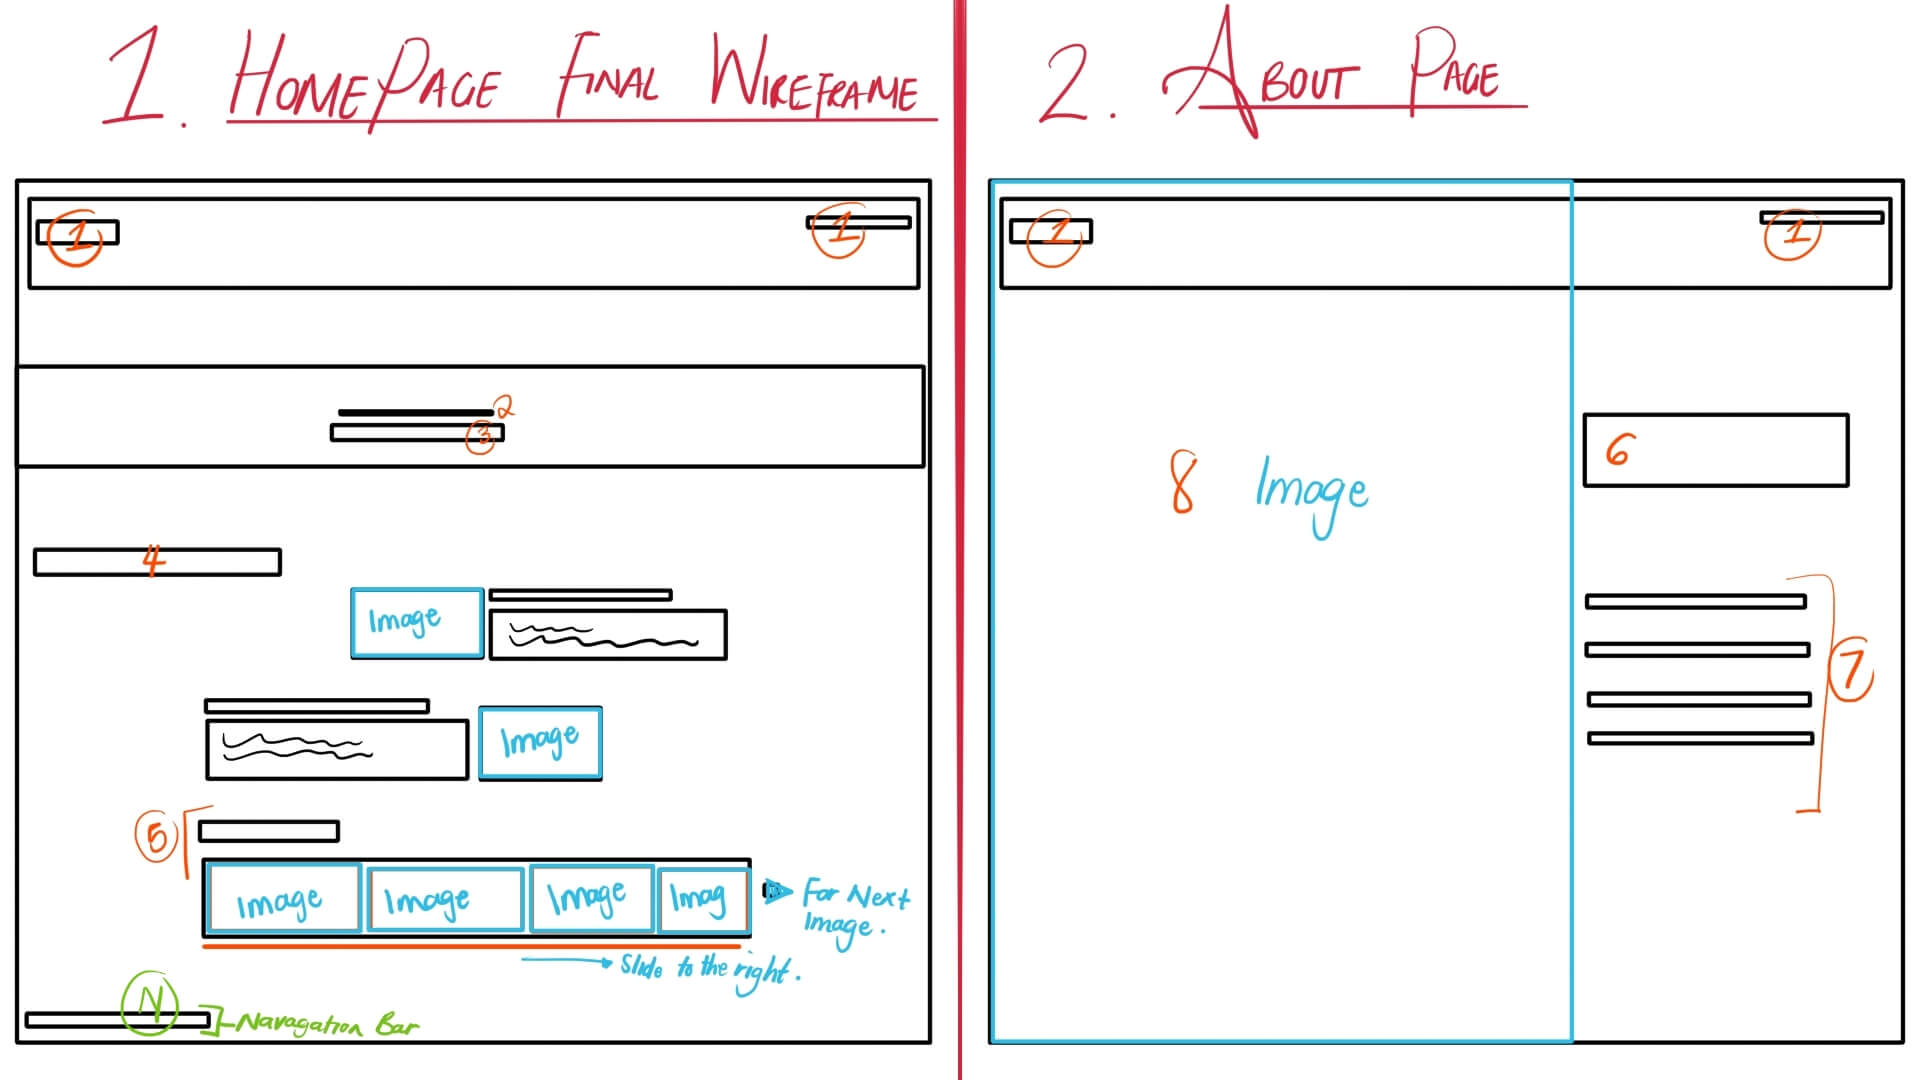 1. HOMEPAGE FINAL WIREFRAME
1 1
2
3
4
Image
Image
5
Image Image Image Imag
For Next
Image.
Slide to the right.
N
Navagation Bar
2. ABOUT PAGE
1 1
8 Image
6
7